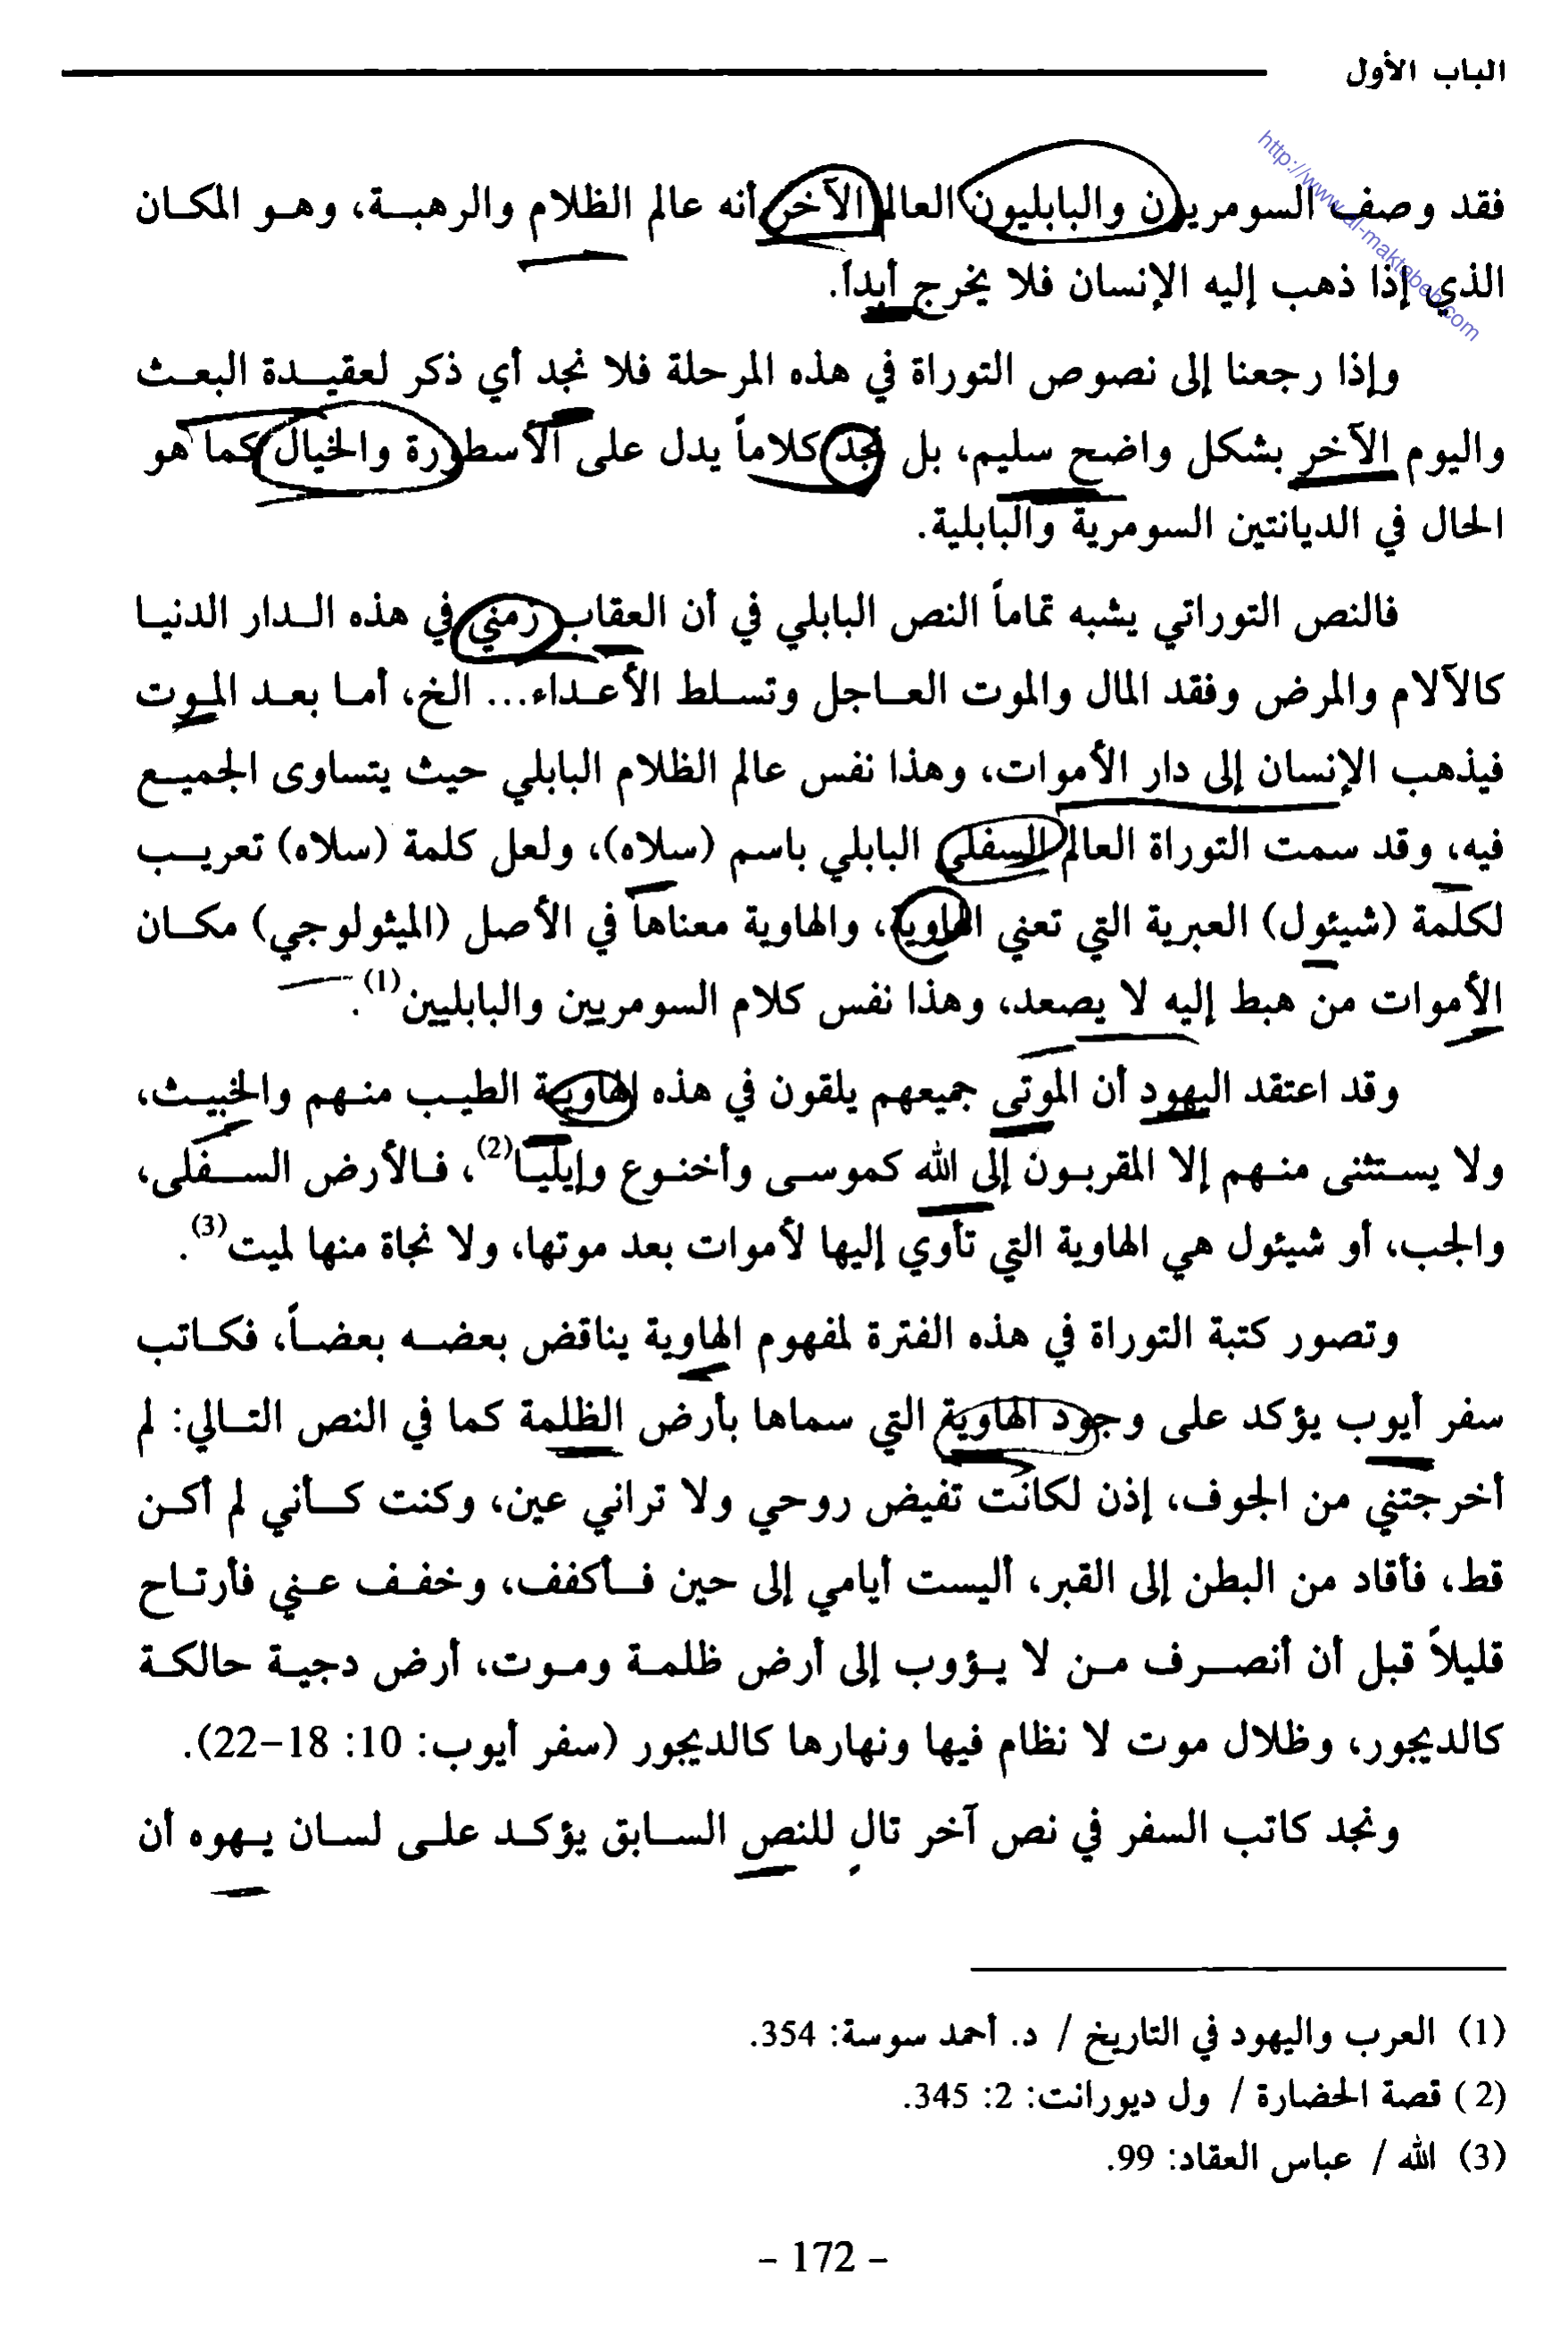 الباب الأول
http://www.al-maktabeh.com
فقد وصف السومريون والبابليون العالم الآخر أنه عالم الظلام والرهبة، وهو المكان
الذي إذا ذهب إليه الإنسان فلا يخرج أبداً.
وإذا رجعنا إلى نصوص التوراة في هذه المرحلة فلا نجد أي ذكر لعقيدة البعث
واليوم الآخر بشكل واضح سليم، بل نجد كلاماً يدل على الأسطورة والخيال كما هو
الحال في الديانتين السومرية والبابلية.
فالنص التوراتي يشبه تماماً النص البابلي في أن العقاب زمني في هذه الدار الدنيا
كالآلام والمرض وفقد المال والموت العاجل وتسلط الأعداء... الخ، أما بعد الموت
فيذهب الإنسان إلى دار الأموات، وهذا نفس عالم الظلام البابلي حيث يتساوى الجميع
فيه، وقد سمت التوراة العالم السفلي البابلي باسم (سلاه)، ولعل كلمة (سلاه) تعريب
لكلمة (شيئول) العبرية التي تعني الهاوية، والهاوية معناها في الأصل (الميثولوجي) مكان
الأموات من هبط إليه لا يصعد، وهذا نفس كلام السومريين والبابليين(1).
وقد اعتقد اليهود أن الموتى جميعهم يلقون في هذه الهاوية الطيب منهم والخبيث،
ولا يستثنى منهم إلا المقربون إلى الله كموسى وأخنوع وإيليا(2)، فالأرض السفلى،
والجب، أو شيئول هي الهاوية التي تأوي إليها لأموات بعد موتها، ولا نجاة منها لميت(3).
وتصور كتبة التوراة في هذه الفترة لمفهوم الهاوية يناقض بعضه بعضاً، فكاتب
سفر أيوب يؤكد على وجود الهاوية التي سماها بأرض الظلمة كما في النص التالي: لم
أخرجتني من الجوف، إذن لكانت تفيض روحي ولا تراني عين، وكنت كأني لم أكن
قط، فأقاد من البطن إلى القبر، أليست أيامي إلى حين فأكفف، وخفف عني فأرتاح
قليلاً قبل أن أنصرف من لا يؤوب إلى أرض ظلمة وموت، أرض دجية حالكة
كالديجور، وظلال موت لا نظام فيها ونهارها كالديجور (سفر أيوب: 10: 18-22).
ونجد كاتب السفر في نص آخر تالٍ للنص السابق يؤكد على لسان يهوه أن
(1) العرب واليهود في التاريخ / د. أحمد سوسة: 354.
(2) قصة الحضارة / ول ديورانت: 2: 345.
(3) الله / عباس العقاد: 99.
- 172 -